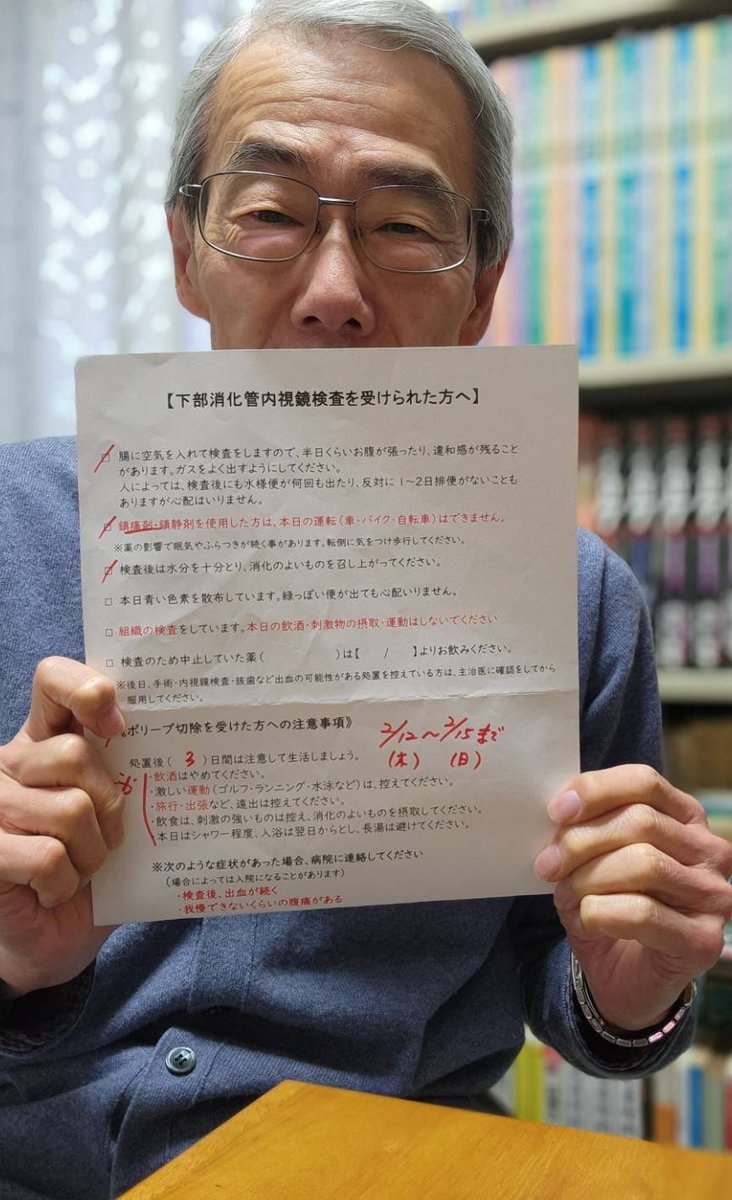 【下部消化管内視鏡検査を受けられた方へ】
□ 腸に空気を入れて検査をしますので、半日くらいお腹が張ったり、違和感が残ること
があります。ガスをよく出すようにしてください。
人によっては、検査後にも水様便が何回も出たり、反対に1～2日排便がないことも
ありますが心配はいりません。
□ 鎮痛剤・鎮静剤を使用した方は、本日の運転（車・バイク・自転車）はできません。
※薬の影響で眠気やふらつきが続く事があります。転倒に気をつけ歩行してください。
□ 検査後は水分を十分とり、消化のよいものを召し上がってください。
□ 本日青い色素を散布しています。緑っぽい便が出ても心配いりません。
□ 組織の検査をしています。本日の飲酒・刺激物の摂取・運動はしないでください
□ 検査のため中止していた薬（　　　　　　）は【　　/　　】よりお飲みください。
※後日、手術・内視鏡検査・抜歯など出血の可能性がある処置を控えている方は、主治医に確認をしてから
服用してください。
《ポリープ切除を受けた方への注意事項》
2/12～2/15まで
(木) (日)
処置後（ 3 ）日間は注意して生活しましょう。
・飲酒はやめてください。
・激しい運動（ゴルフ・ランニング・水泳など）は、控えてください。
・旅行・出張など、遠出は控えてください。
・飲食は、刺激の強いものは控え、消化のよいものを摂取してください。
・本日はシャワー程度、入浴は翌日からとし、長湯は避けてください。
※次のような症状があった場合、病院に連絡してください
（場合によっては入院になることがあります）
・検査後、出血が続く
・我慢できないくらいの腹痛がある